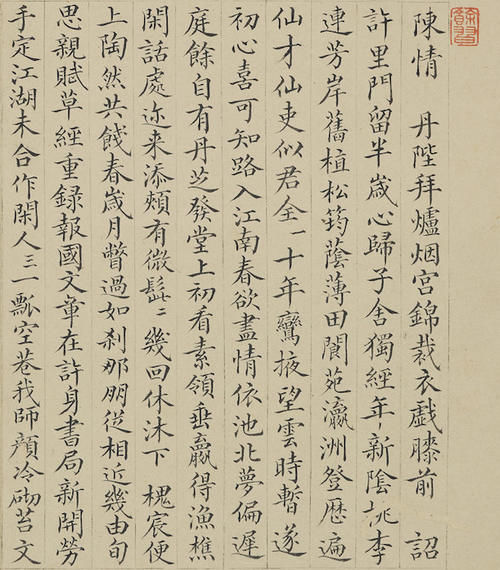 陳情　丹陛拜爐烟宮錦裁衣戲膝前　詔
許里門留半歲心歸子舍獨經年新陰桃李
連芳岸舊植松筠蔭薄田閬苑瀛洲登歷遍
仙才仙吏似君全一十年鸞掖望雲時暫遂
初心喜可知路入江南春欲盡情依池北夢偏遲
庭餘自有丹芝發堂上初看素領垂贏得漁樵
閑話處迩来添頰有微髭二幾回休沐下　槐宸便
上陶然共餞春歲月瞥過如刹那朋從相近幾由旬
思親賦草經重錄報國文章在許身書局新開勞
手定江湖未合作閑人三一瓢空巷我師顏冷砌苔文